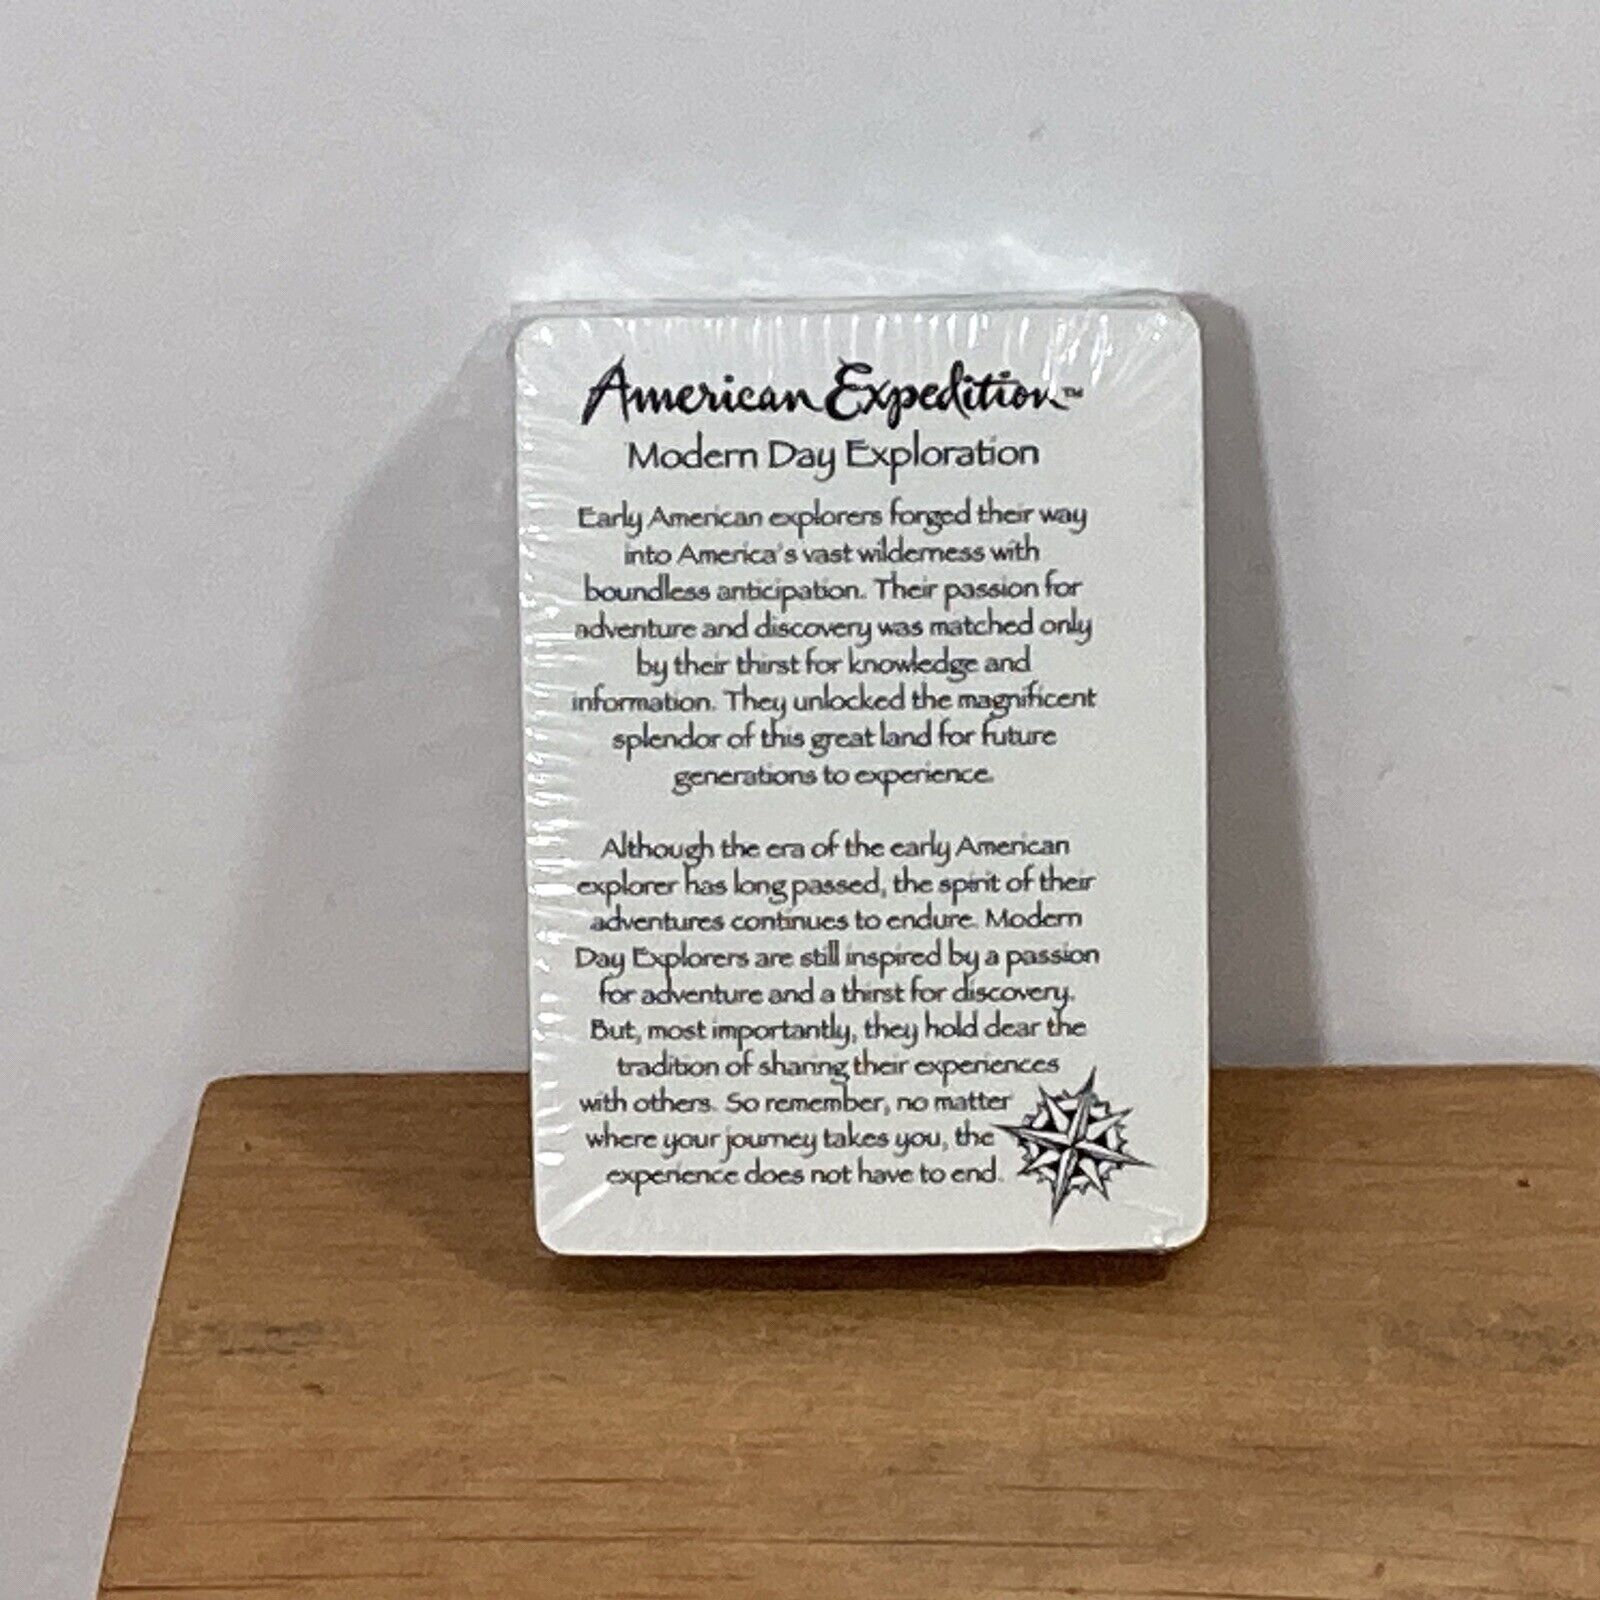 American Expedition™
Modern Day Exploration
Early American explorers forged their way
into America's vast wilderness with
boundless anticipation. Their passion for
adventure and discovery was matched only
by their thirst for knowledge and
information. They unlocked the magnificent
splendor of this great land for future
generations to experience.
Although the era of the early American
explorer has long passed, the spirit of their
adventures continues to endure. Modern
Day Explorers are still inspired by a passion
for adventure and a thirst for discovery.
But, most importantly, they hold dear the
tradition of sharing their experiences
with others. So remember, no matter
where your journey takes you, the
experience does not have to end.